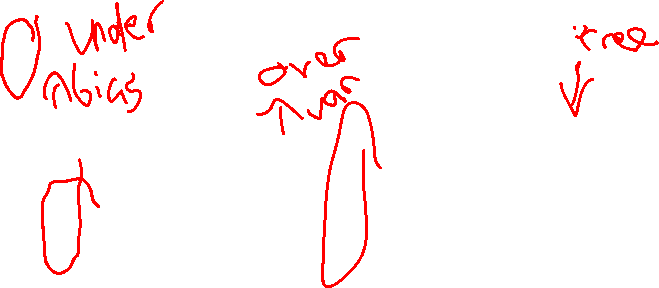 under
↑bias
over
↑var
tree